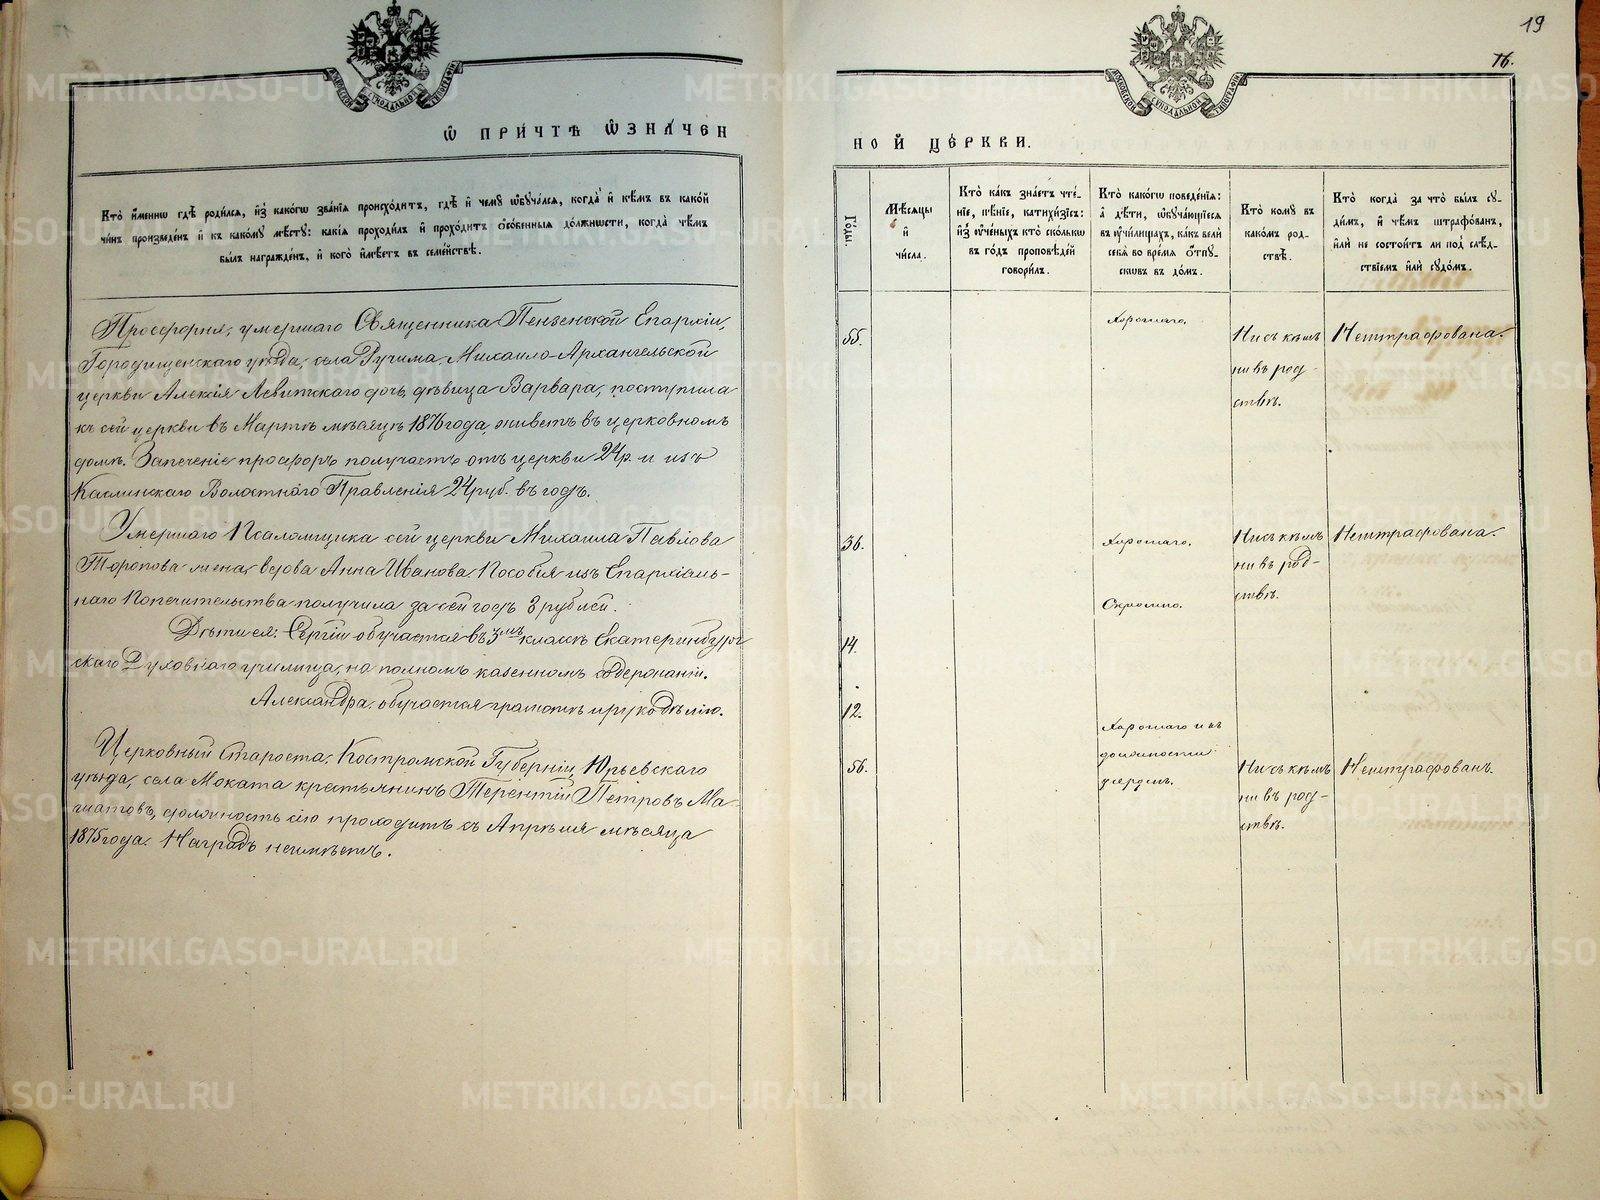 19
16.
Ѿ ПРИЧТѢ Ѡ҆ЗНАЧЕН
НОЙ ЦЕРКВИ.
Кто̀ и҆́менно гдѣ̀ роди́лся, и҆з̾ како́гѡ зва́нїѧ происхо́дитъ, гдѣ̀ и҆ чемꙋ̀ ѡ҆бꙋча́лся, когда̀ и҆ кѣ́мъ въ како́й
чи́нъ произведе́нъ и҆ къ како́мꙋ мѣ́стꙋ: какі̑ѧ проходи́лъ и҆ прохо́дитъ ѻ҆со́бенныѧ до́лжности, когда̀ чѣ́мъ
бы́лъ награжде́нъ, и҆ кого̀ и҆мѣ́етъ въ семе́йствѣ.
Го́ды.
Мѣ́сяцы
и҆
чи́сла.
Кто̀ ка́къ зна́етъ чте́-
нїе, пѣ́нїе, катихи́зїсъ:
и҆з̾ ᲂу҆че́ныхъ кто̀ ско́лькѡ
въ го́дъ проповѣ́дей
говори́лъ.
Кто̀ како́гѡ поведе́нїѧ:
а҆ дѣ́ти, ѡ҆бꙋча́ющїесѧ
въ ᲂу҆чи́лищахъ, ка́къ велѝ
себѧ̀ во вре́мѧ ѿпꙋ-
скѡвъ въ до́мъ.
Кто̀ комꙋ̀ въ
како́мъ род-
ствѣ̀.
Кто̀ когда̀ за что̀ бы́лъ сꙋ-
ди́мъ, и҆ чѣ́мъ штрафо́ванъ,
и҆лѝ не состои́тъ ли под̾ слѣ́д-
ствїемъ и҆лѝ сꙋдо́мъ.
Просфорня, умершаго Священника Пензенской Епархіи,
Городищенскаго уѣзда, села Ручима Михаило-Архангельской
церкви Алексія Левитскаго дочь, дѣвица Варвара, поступила
къ сей церкви въ Мартѣ мѣсяцѣ 1876 года, живетъ въ церковномъ
домѣ. За печеніе просфоръ получаетъ отъ церкви 24 р. и изъ
Каслинскаго Волостнаго Правленія 24 руб. въ годъ.
55.
Хорошаго.
Ни съ кѣмъ
ни въ род-
ствѣ.
Нештрафована.
Умершаго Псаломщика сей церкви Михаила Павлова
Торопова жена, вдова Анна Иванова. Пособія изъ Епархіаль-
наго Попечительства получила за сей годъ 3 рублей.
36.
Хорошаго.
Ни съ кѣмъ
ни въ род-
ствѣ.
Нештрафована.
Дѣти ея: Сергій обучается въ 3мъ классѣ Екатеринбург-
скаго Духовнаго училища, на полномъ казенномъ содержаніи.
14.
Скромно.
Александра, обучается грамотѣ и рукодѣлію.
12.
Церковный Староста, Костромской Губерніи, Юрьевскаго
уѣзда, села Моката крестьянинъ Терентій Петровъ Ма-
шатовъ, должность сію проходитъ съ Апрѣля мѣсяца
1875 года. Наградъ неимѣетъ.
56.
Хорошаго и къ
должности
усердѣнъ.
Ни съ кѣмъ
ни въ род-
ствѣ.
Нештрафованъ.
METRIKI.GASO-URAL.RU